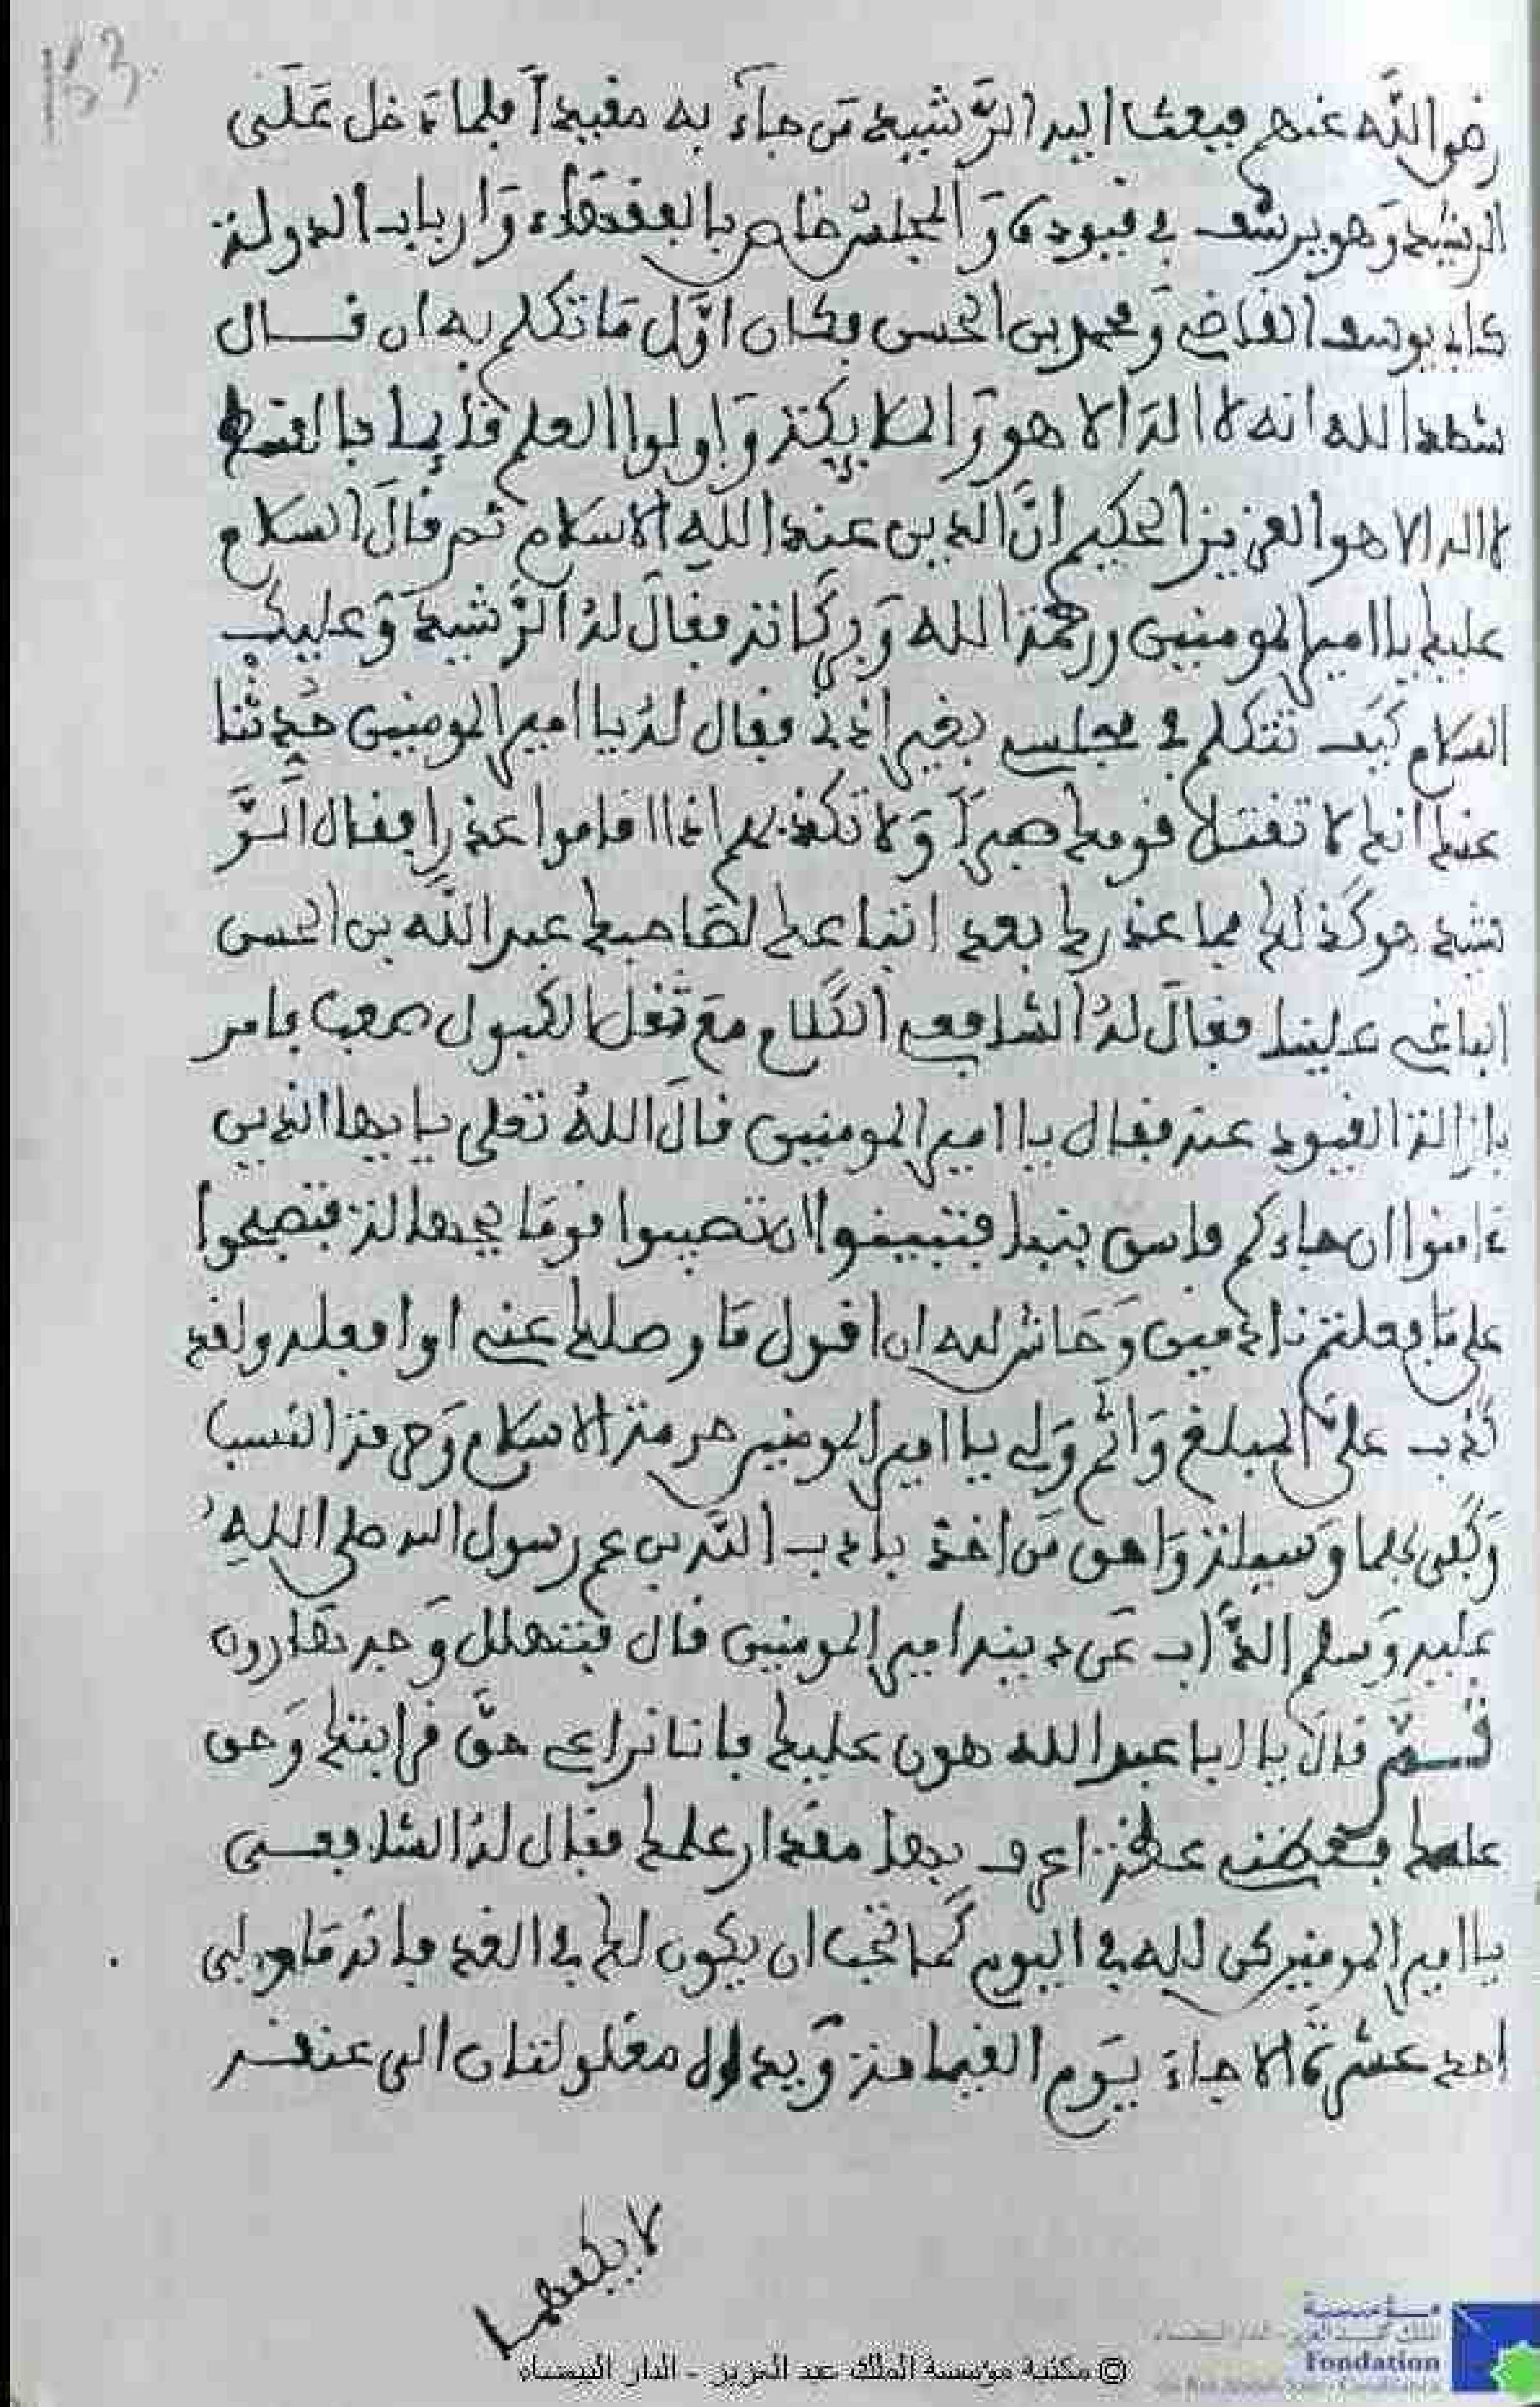 53
رضي الله عنهم فبعث اليه الرَّشيد مَن جاءَ به مقيداً فلما دَخل عَلَى
الرشيد وَهو يرسف في قيوده وَالمجلس خاص بالفقهاء وَارباب الدولة
كابي يوسف القاضي وَمحمد بن الحسن فكان اوَّل مَا تكلم به ان قال
شهد الله انه لا اله الا هو وَالملائكة وَاولوا العلم قائما بالقسط
لا اله الا هو العزيز الحكيم انَّ الدين عند الله الاسلام ثم قالَ السلام
عليك يا امير المومنين ورحمة الله وَبركاته فقالَ لهُ الرَّشيد وَعليك
السلام كَيف تتكلم في مجلسي بغير اذني فقال لهُ يا امير المومنين حَدثنا
عنك انك لا تقتل قومك صبراً وَلا تكذبهم اذا اقاموا عذرا فقال الرَّ
شيد هو كَذلك فما عذرك بعد اتباعك لصَاحبك عبد الله بن الحسن
الباغي علينا فقالَ لهُ الشافعي الكَلام معَ ثقل الكبول صعب فامر
بازالة القيود عنه فقال يا امير المومنين قالَ اللهُ تعلى يايها الذين
ءامنوا ان جاءكم فاسق بنبإ فتبينوا ان تصيبوا قومَا بجهالة فتصبحوا
على مَا فعلتم نادمين وَحَاش لله ان اقول مَا وصلك عني او افعله ولقد
كَذب علىَّ المبلغ وَاثم وَلي يا امير المومنين حرمة الاسلام وَحرمة النسب
وَكَفى بهما وَسيلة وَاحق مَن اخذ بادب الله بن عم رسول الله صلى اللهِ
عليه وَسلم الذَّاب عَن دينه امير المومنين قال فتهلل وَجه هَارون
ثم قالَ يا ابا عبد الله هون عليك فانا نراعي حقَّ قرابتك وَحق
علمك فعظني عظة اعرف بها مقدار علمك فقال لهُ الشافعي
يا امير المومنين كن لله في اليوم كَما تحب ان يكون لك في الغد فانه مَا ولي
احد عشرة الا جاءَ يَوم القيامة وَيداه مغلولتان الى عنقه
لا يفكهما
© مكتبة مؤسسة الملك عبد العزيز - الدار البيضاء
مؤسسة
الملك عبد العزيز - الدار البيضاء
Fondation
du Roi Abdul-Aziz - Casablanca